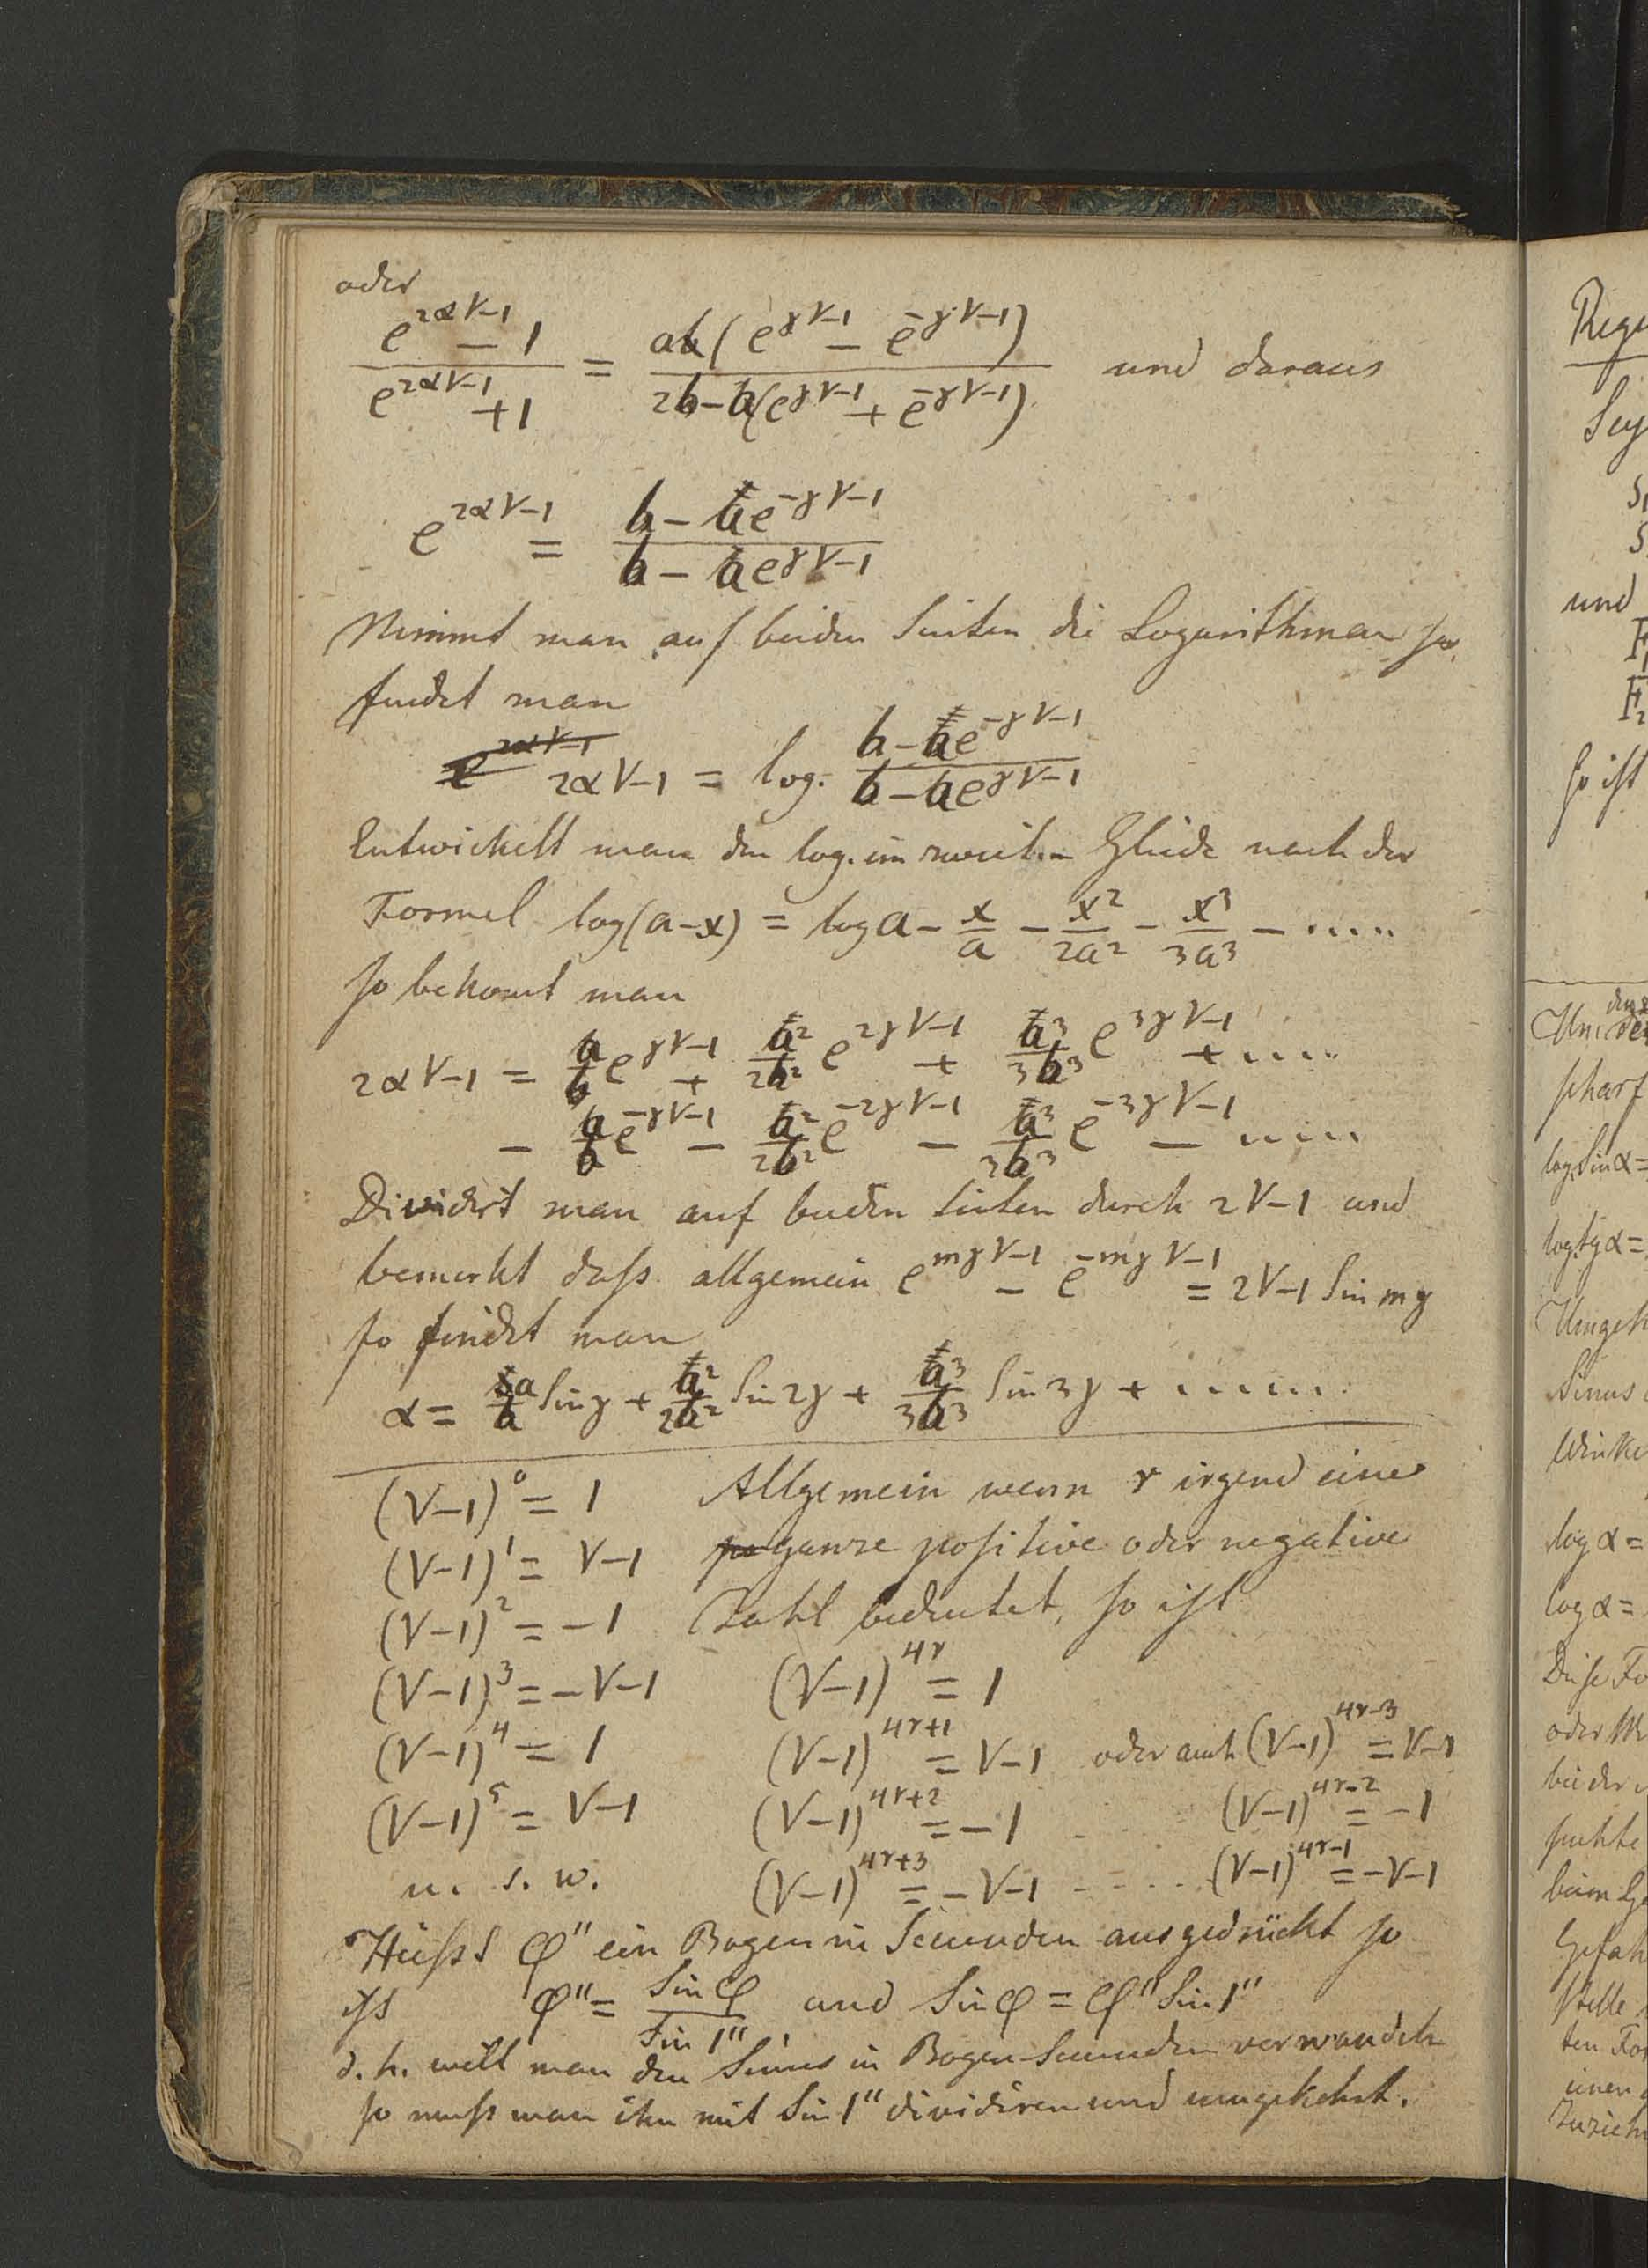 oder
(e^{2α√-1} - 1)/(e^{2α√-1} + 1) = a(e^{γ√-1} - e^{-γ√-1})/(2b - a(e^{γ√-1} + e^{-γ√-1})) und daraus
e^{2α√-1} = (b - ae^{-γ√-1})/(b - ae^{γ√-1})
Nimmt man auf beiden Seiten die Logarithmen so
findet man
2α√-1 = log. (b - ae^{-γ√-1})/(b - ae^{γ√-1})
Entwickelt man den log. im zweiten Gliede nach der
Formel log(a-x) = log a - x/a - x²/2a² - x³/3a³ - ....
so bekomt man
2α√-1 = a/b e^{γ√-1} + a²/2b² e^{2γ√-1} + a³/3b³ e^{3γ√-1} + ....
- a/b e^{-γ√-1} - a²/2b² e^{-2γ√-1} - a³/3b³ e^{-3γ√-1} - ....
Dividirt man auf beiden Seiten durch 2√-1 und
bemerkt daß allgemein e^{mγ√-1} - e^{-mγ√-1} = 2√-1 Sin mγ
so findet man
α = a/b Sin γ + a²/2b² Sin 2γ + a³/3b³ Sin 3γ + ......
(√-1)^0 = 1 Allgemein wenn r irgend eine
(√-1)^1 = √-1 ganze positive oder negative
(√-1)^2 = -1 Zahl bedeutet, so ist
(√-1)^3 = -√-1 (√-1)^{4r} = 1
(√-1)^4 = 1 (√-1)^{4r+1} = √-1 oder auch (√-1)^{4r-3} = √-1
(√-1)^5 = √-1 (√-1)^{4r+2} = -1 .... (√-1)^{4r-2} = -1
u. s. w. (√-1)^{4r+3} = -√-1 ..... (√-1)^{4r-1} = -√-1
Heißt φ" ein Bogen in Secunden ausgedrückt so
ist φ" = Sin φ/Sin 1" und Sin φ = φ" Sin 1"
d. h. will man den Sinus in Bogen-Secunden verwandeln
so muß man ihn mit Sin 1" dividiren und umgekehrt.
und
so ist
log Sin α =
log tg α =
log α =
log α =